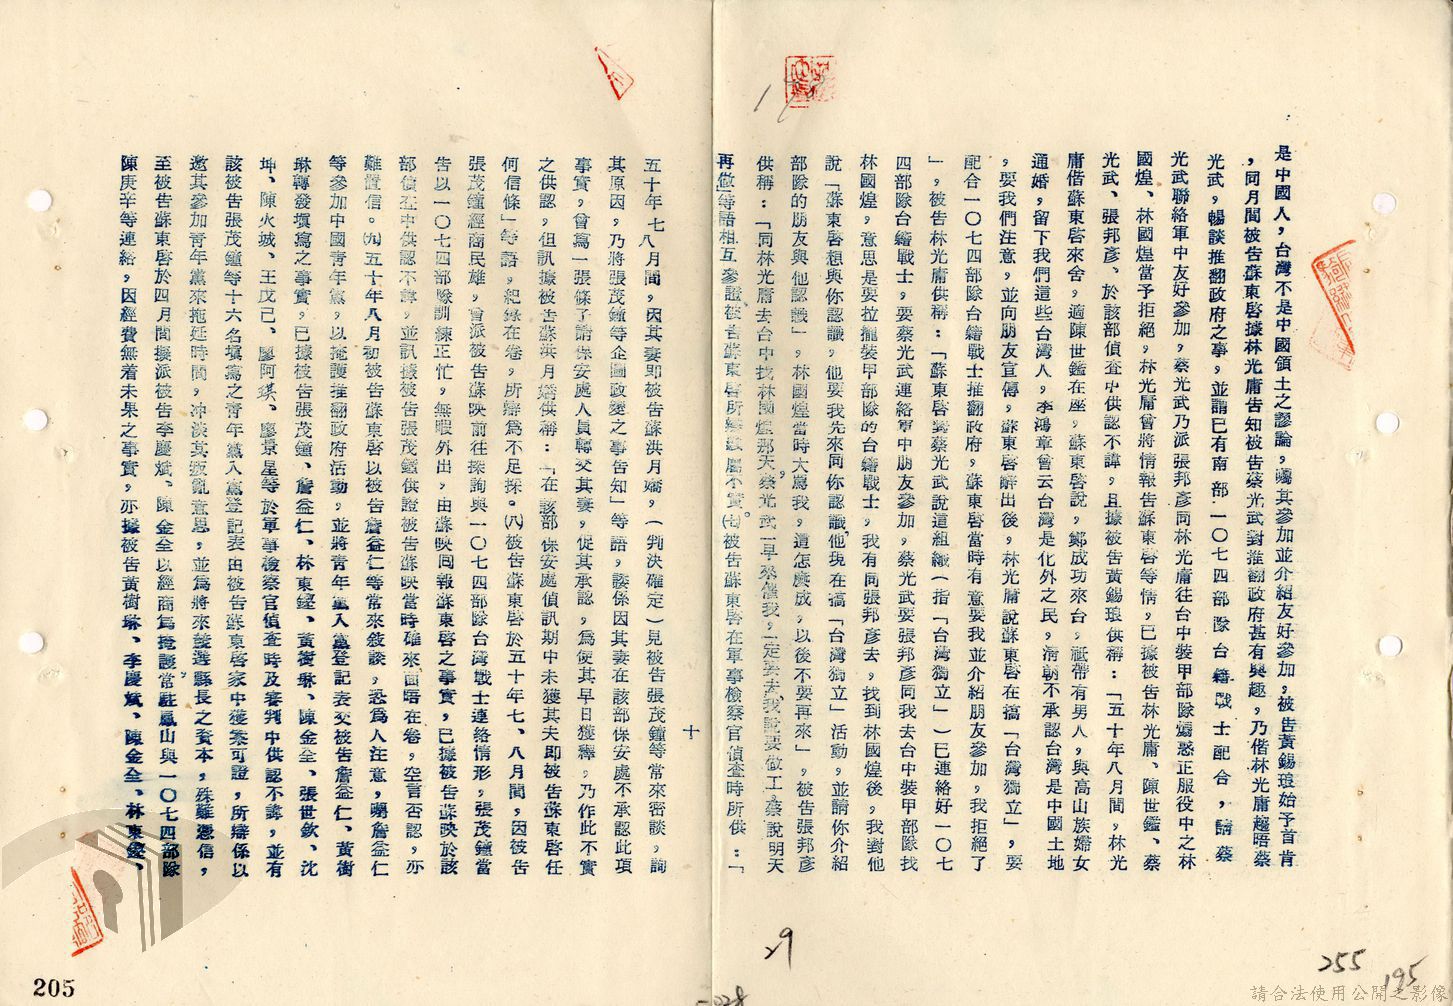 是中國人，台灣不是中國領土之謬論，囑其參加並介紹友好參加，被告黃錫琅始予首肯
，同月間被告蘇東啓據林光庸告知被告蔡光武對推翻政府甚有興趣，乃偕林光庸趨晤蔡
光武，暢談推翻政府之事，並謂已有南部一〇七四部隊台籍戰士配合，請蔡
光武聯絡軍中友好參加，蔡光武乃派張邦彥同林光庸往台中裝甲部隊煽惑正服役中之林
國煌、林國煌當予拒絕，林光庸曾將情報告蘇東啓等情，已據被告林光庸、陳世鑑、蔡
光武、張邦彥、於該部偵查中供認不諱，且據被告黃錫琅供稱：「五十年八月間，林光
庸偕蘇東啓來舍，適陳世鑑在座，蘇東啓說，鄭成功來台，祗帶有男人，與高山族婦女
通婚，留下我們這些台灣人，李鴻章曾云台灣是化外之民，清朝不承認台灣是中國土地
，要我們注意，並向朋友宣傳，蘇東啓辭出後，林光庸說蘇東啓在搞「台灣獨立」，要
配合一〇七四部隊台籍戰士推翻政府，蘇東啓當時有意要我並介紹朋友參加，我拒絕了
」，被告林光庸供稱：「蘇東啓對蔡光武說這組織（指「台灣獨立」）已連絡好一〇七
四部隊台籍戰士，要蔡光武連絡軍中朋友參加，蔡光武要張邦彥同我去台中裝甲部隊找
林國煌，意思是要拉攏裝甲部隊的台籍戰士，我有同張邦彥去，找到林國煌後，我對他
說「蘇東啓想與你認識，他要我先來同你認識，他現在搞「台灣獨立」活動，並請你介紹
部隊的朋友與他認識」，林國煌當時大罵我，這怎麽成，以後不要再來」，被告張邦彥
供稱：「同林光庸去台中找林國煌那天，蔡光武一早來催我，一定要去，我說要做工，蔡說明天
再做」等語相互參證，被告蘇東啓所辯殊屬不實。㈦被告蘇東啓在軍事檢察官偵查時所供：「
十
五十年七八月間，因其妻即被告蘇洪月嬌，（判決確定）見被告張茂鐘等常來密談，詢
其原因，乃將張茂鐘等企圖政變之事告知」等語，諉係因其妻在該部保安處不承認此項
事實，曾寫一張條子請保安處人員轉交其妻，促其承認，爲使其早日獲釋，乃作此不實
之供認，但訊據被告蘇洪月嬌供稱：「在該部保安處偵訊期中未獲其夫即被告蘇東啓任
何信條」等語，紀錄在卷，所辯爲不足採。㈧被告蘇東啓於五十年七、八月間，因被告
張茂鐘經商民雄，曾派被告蘇映前往探詢與一〇七四部隊台灣戰士連絡情形，張茂鐘當
告以一〇七四部隊訓練正忙，無暇外出，由蘇映回報蘇東啓之事實，已據被告蘇映於該
部偵查中供認不諱，並訊據被告張茂鐘供證被告蘇映當時確來面晤在卷，空言否認，亦
難置信。㈨五十年八月初被告蘇東啓以被告詹益仁等常來敘談，恐爲人注意，囑詹益仁
等參加中國青年黨，以掩護推翻政府活動，並將青年黨入黨登記表交被告詹益仁、黃樹
琳轉發填寫之事實，已據被告張茂鐘、詹益仁、林東鏗、黃樹琳、陳金全、張世欽、沈
坤、陳火城、王戊己、廖阿琪、廖景星等於軍事檢察官偵查時及審判中供認不諱，並有
該被告張茂鐘等十六名填寫之青年黨入黨登記表由被告蘇東啓家中獲案可證，所辯係以
邀其參加青年黨來拖延時間，冲淡其叛亂意思，並爲將來議選縣長之資本，殊難憑信，
至被告蘇東啓於四月間擬派被告李慶斌、陳金全以經商爲掩護，常駐鳳山與一〇七四部隊
陳庚辛等連絡，因經費無着未果之事實，亦據被告黃樹琳、李慶斌、陳金全、林東鏗、
29
255
195
205
請合法使用公開之影像